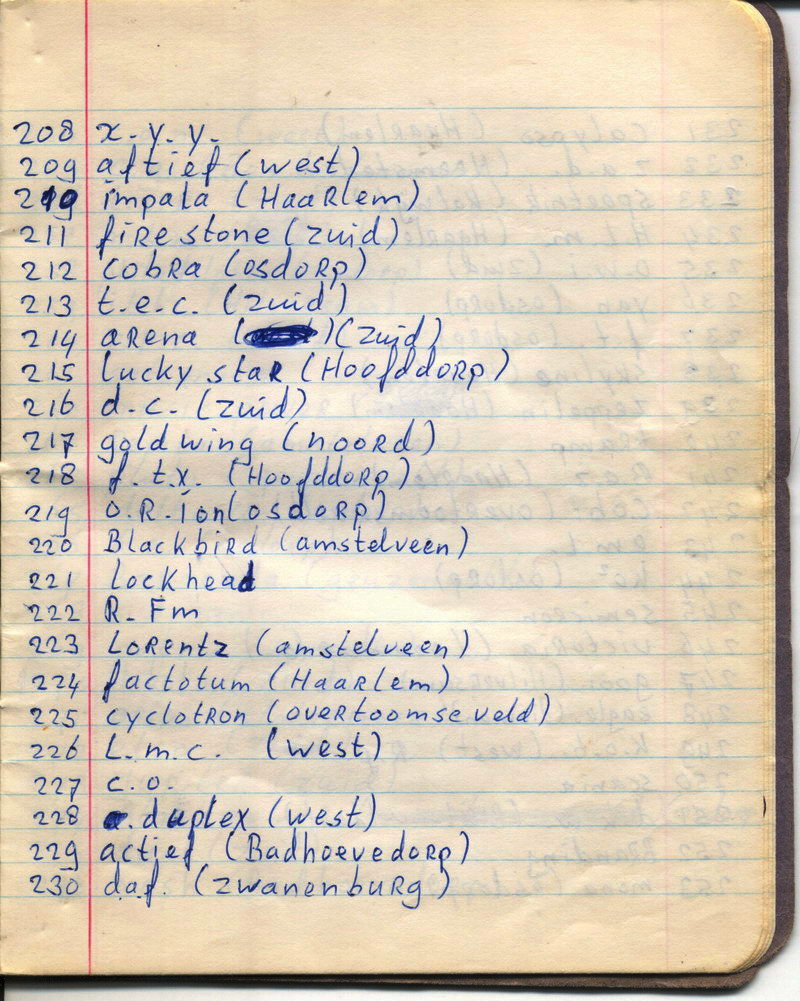 208 x. y. y.
209 aftief (west)
210 impala (HaaRlem)
211 fiRestone (zuid)
212 cobRa (osdoRp)
213 t.e.c. (zuid)
214 aRena (zuid)
215 lucky staR (HoofddoRp)
216 d.c. (zuid)
217 goldwing (nooRd)
218 f.t.x. (HoofddoRp)
219 o.R.ion (osdoRp)
220 BlackbiRd (amstelveen)
221 lockhead
222 R. Fm
223 LoRentz (amstelveen)
224 factotum (HaaRlem)
225 cyclotRon (oveRtoomseveld)
226 L.m.c. (west)
227 c.o.
228 a.duplex (west)
229 actief (BadhoevedoRp)
230 daf. (zwanenbuRg)